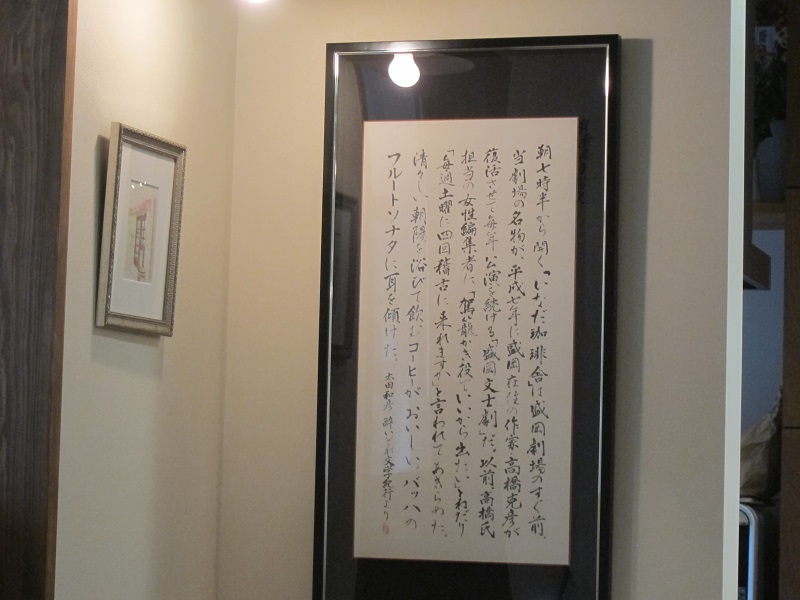 朝七時半から開く「いなだ珈琲舎」は盛岡劇場のすぐ前、
当劇場の名物が、平成七年に盛岡在住の作家・高橋克彦が
復活させて毎年公演を続ける「盛岡文士劇」だ。以前、高橋氏
担当の女性編集者に、「駕籠かき役でいいから出たい」とねだり
「毎週土曜に四回稽古に来れますか」と言われてあきらめた。
清々しい朝陽を浴びて飲むコーヒーがおいしい。バッハの
フルートソナタに耳を傾けた。 太田和彦 酔いどれ文学紀行より